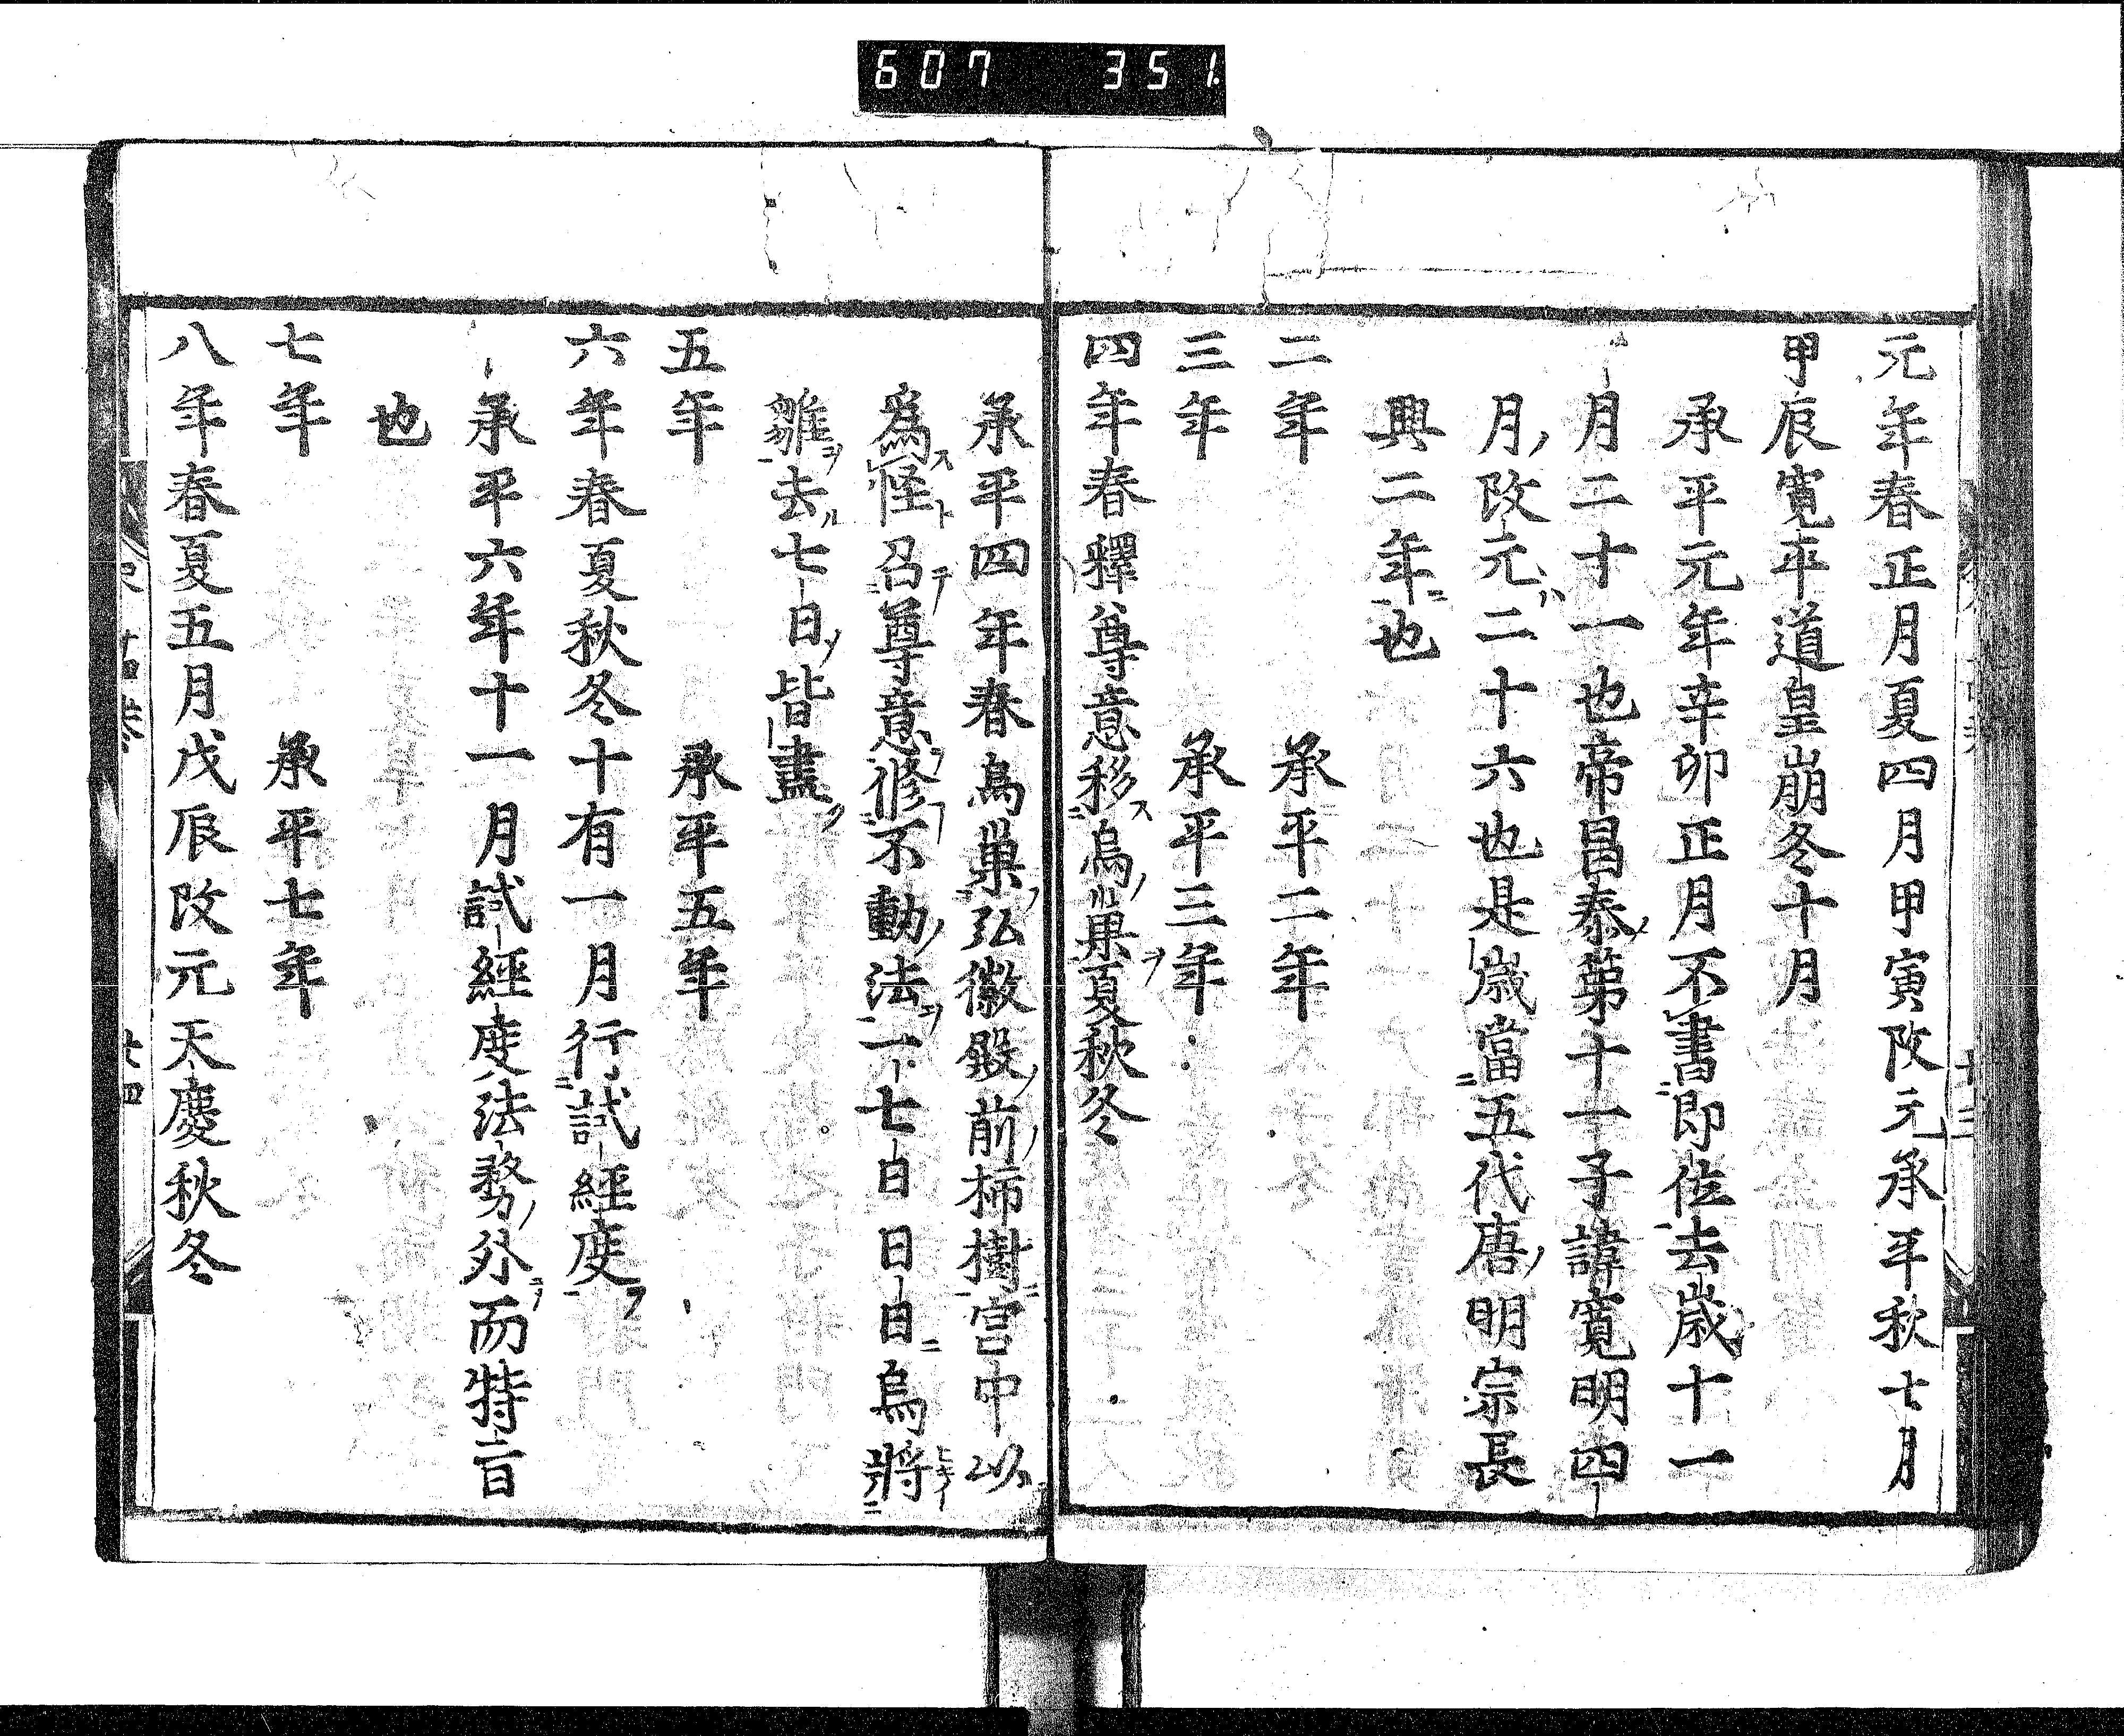 607 351
元年春正月夏四月甲寅改元承平秋七月
甲辰寛平道皇崩冬十月
承平元年辛卯正月不書即位去歳十一
月二十一也帝昌泰第十一子諱寛明四
月改元二十六也是歳當五代唐明宗長
興二年也
二年 承平二年
三年 承平三年
四年春釋尊意移烏巣夏秋冬
承平四年春烏巣弘徽殿前柿樹宮中以
爲怪召尊意修不動法二七日日日烏將
雛去七日皆盡
五年 承平五年
六年春夏秋冬十有一月行試經度
承平六年十一月試經度法務外而特旨
也
七年 承平七年
八年春夏五月戊辰改元天慶秋冬